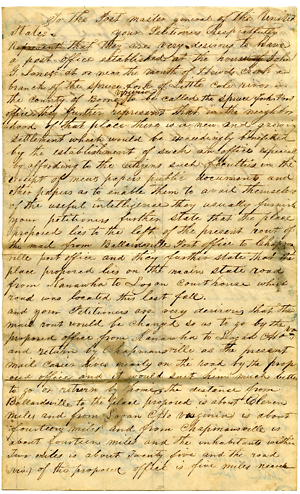 To the Post master general of the United
States. your Petitioners Respectfully
represent that they are very desirous to have
a post office established at the house of John
G. at or near the mouth of Creek a
branch of the spruce fork of Little Coal river in
the County of Boone to be called the spruce fork post
office they further represent that in the neighbor
hood of that place there is a new and good
settlement which would be
by the establishment of such an office
affording to the citizens such facilities in the
receipt of news papers public documents and
other papers as to enable them to avail themselves
of the useful intelligence they usually furnish
your petitioners further state that the place
proposed lies to the left of the present rout of
the mail from Ballardsville Post office to
ville post office and they further state that the
place proposed lies on the main state road
from Kanawha to Logan Courthouse which
road was located this last fall.
and your Petitioners are very desirous that the
mail rout would be changed so as to go by the
proposed office from Kanawha to Logan CH
and return by Chapmansville as the present
mail carier goes mostly on the road by the
office and
to or return from the distance from
Ballardsville to the place proposed is about Eleven
miles and from Logan CH Virginia is about
fourteen miles and from Chapmansville is
about fourteen miles and the inhabitants within
two miles is about twenty five and the road
of the proposed office is five miles nearer